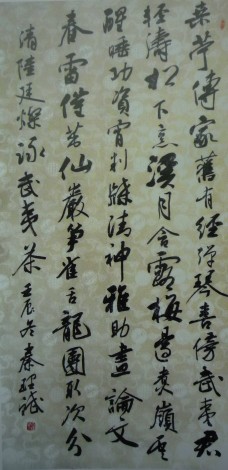 桑苧傳家舊有經彈琴喜傍武夷君
輕濤松下烹溪月含露梅邊煮嶺雲
醒睡功資宵判牒清神雅助畫論文
春雷催茁仙巖筍雀舌龍團取次分
清陸廷燦詠武夷茶 壬辰冬 秦